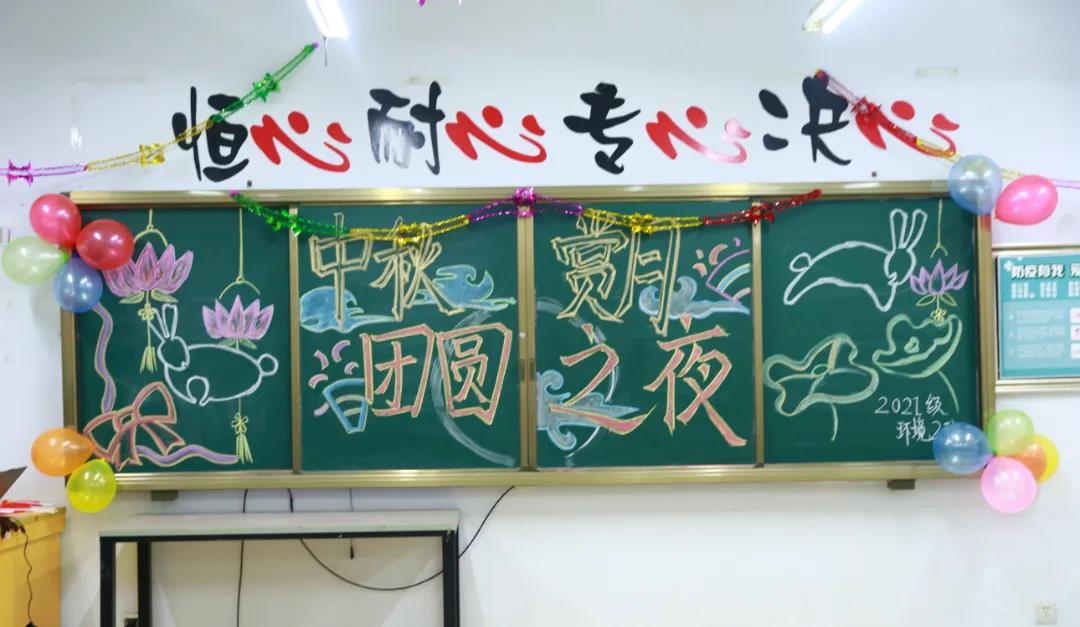 恒心 耐心 专心 决心
中秋 赏月
团圆之夜
2021级
环境2
防疫有我